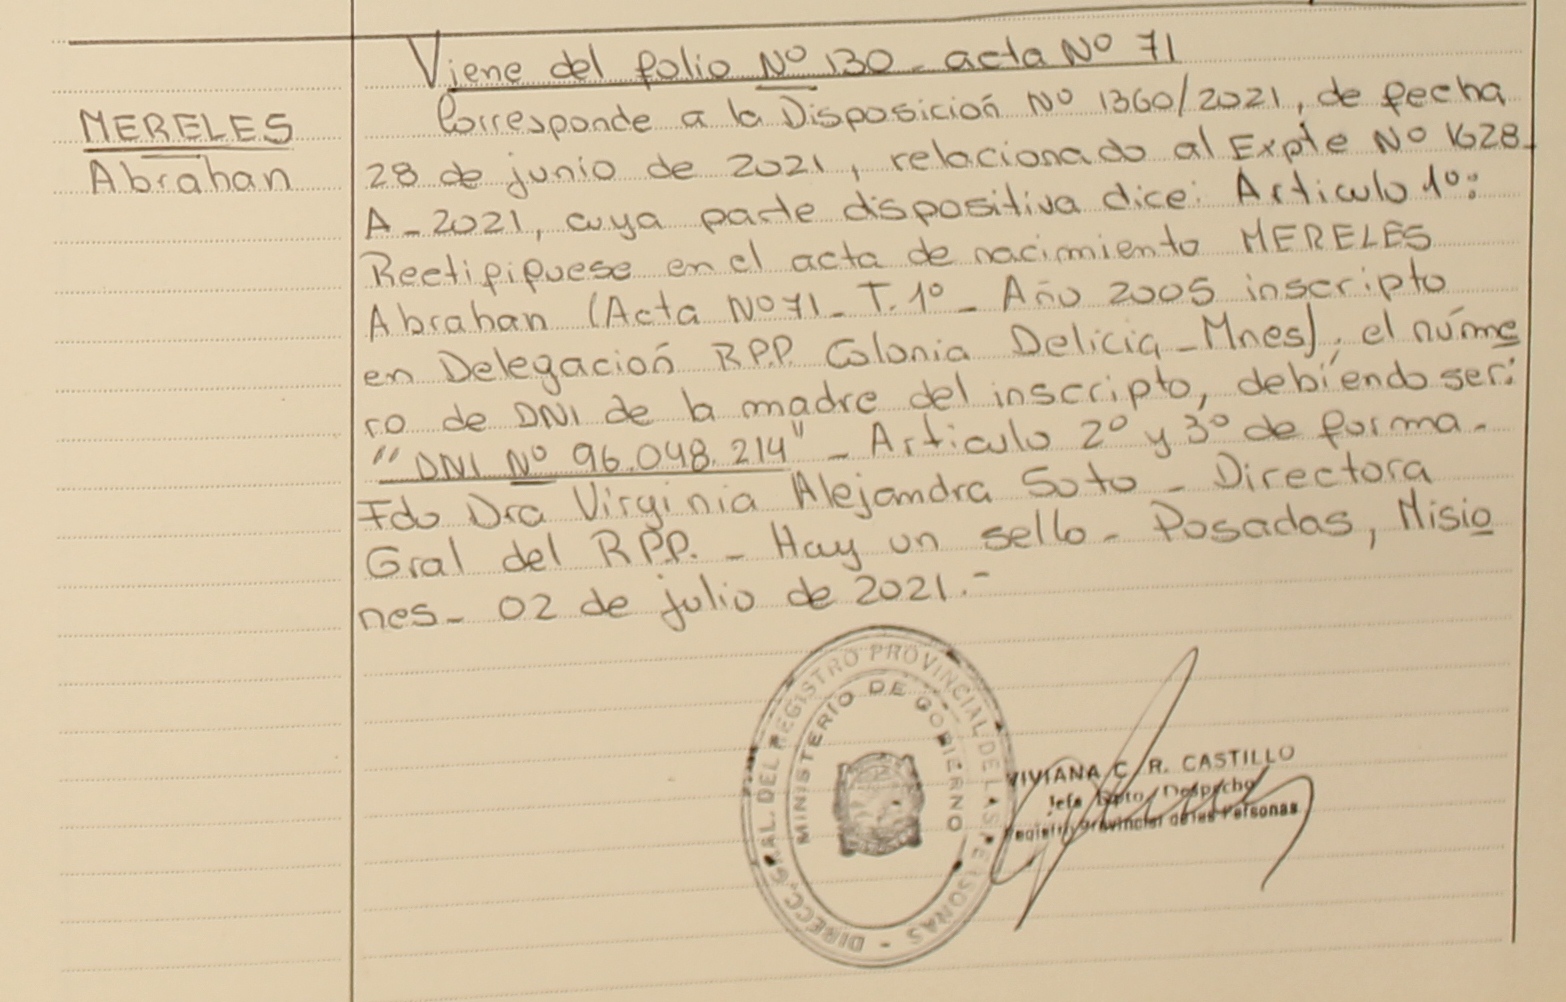 Viene del folio Nº 130 - acta Nº 71
MERELES
Abrahan
Corresponde a la Disposición Nº 1360/2021, de fecha
28 de junio de 2021, relacionado al Expte Nº 1628-
A-2021, cuya parte dispositiva dice: Articulo 1º:
Rectifiquese en el acta de nacimiento MERELES
Abrahan (Acta Nº 71 - T. 1º - Año 2005 inscripto
en Delegación RPP. Colonia Delicia - Mnes), el núme
ro de DNI de la madre del inscripto, debiendo ser:
"DNI Nº 96.048.214" - Articulo 2º y 3º de forma.-
Fdo Dra Virginia Alejandra Soto - Directora
Gral del RPP. - Hay un sello - Posadas, Misio
nes - 02 de julio de 2021.-
DIRECC. GRAL. DEL REGISTRO PROVINCIAL DE LAS PERSONAS -
MINISTERIO DE GOBIERNO
VIVIANA C. R. CASTILLO
Jefa Dpto. Despacho
Registro Provincial de las Personas